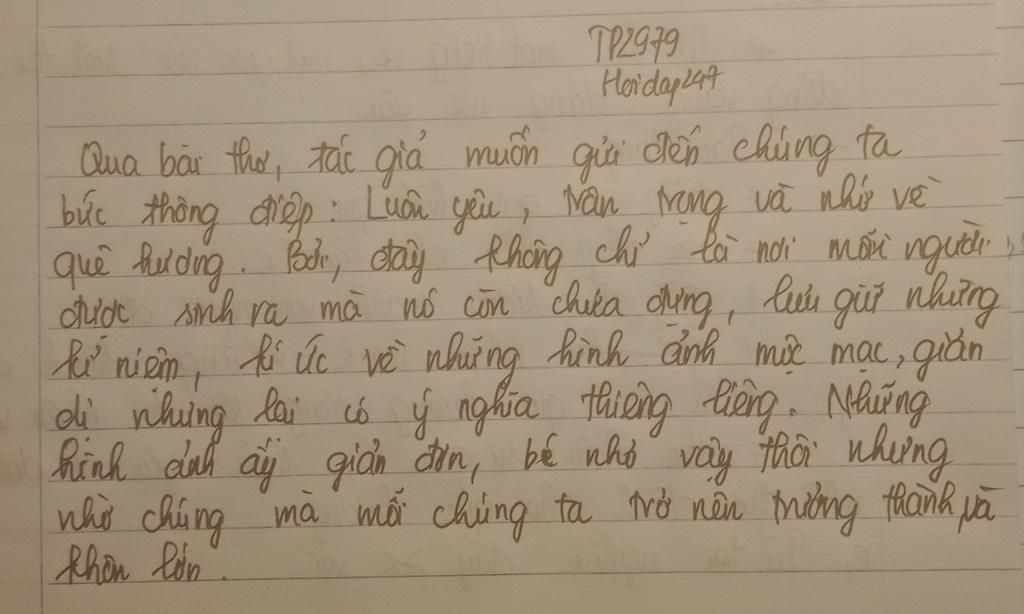 TP2979
Hoidap247
Qua bài thơ, tác giả muốn gửi đến chúng ta
bức thông điệp: Luôn yêu, trân trọng và nhớ về
quê hương. Bởi, đây không chỉ là nơi mỗi người
được sinh ra mà nó còn chứa đựng, lưu giữ những
kỉ niệm, kí ức về những hình ảnh mộc mạc, giản
dị nhưng lại có ý nghĩa thiêng liêng. Những
hình ảnh ấy giản đơn, bé nhỏ vậy thôi nhưng
nhờ chúng mà mỗi chúng ta trở nên trưởng thành và
khôn lớn.